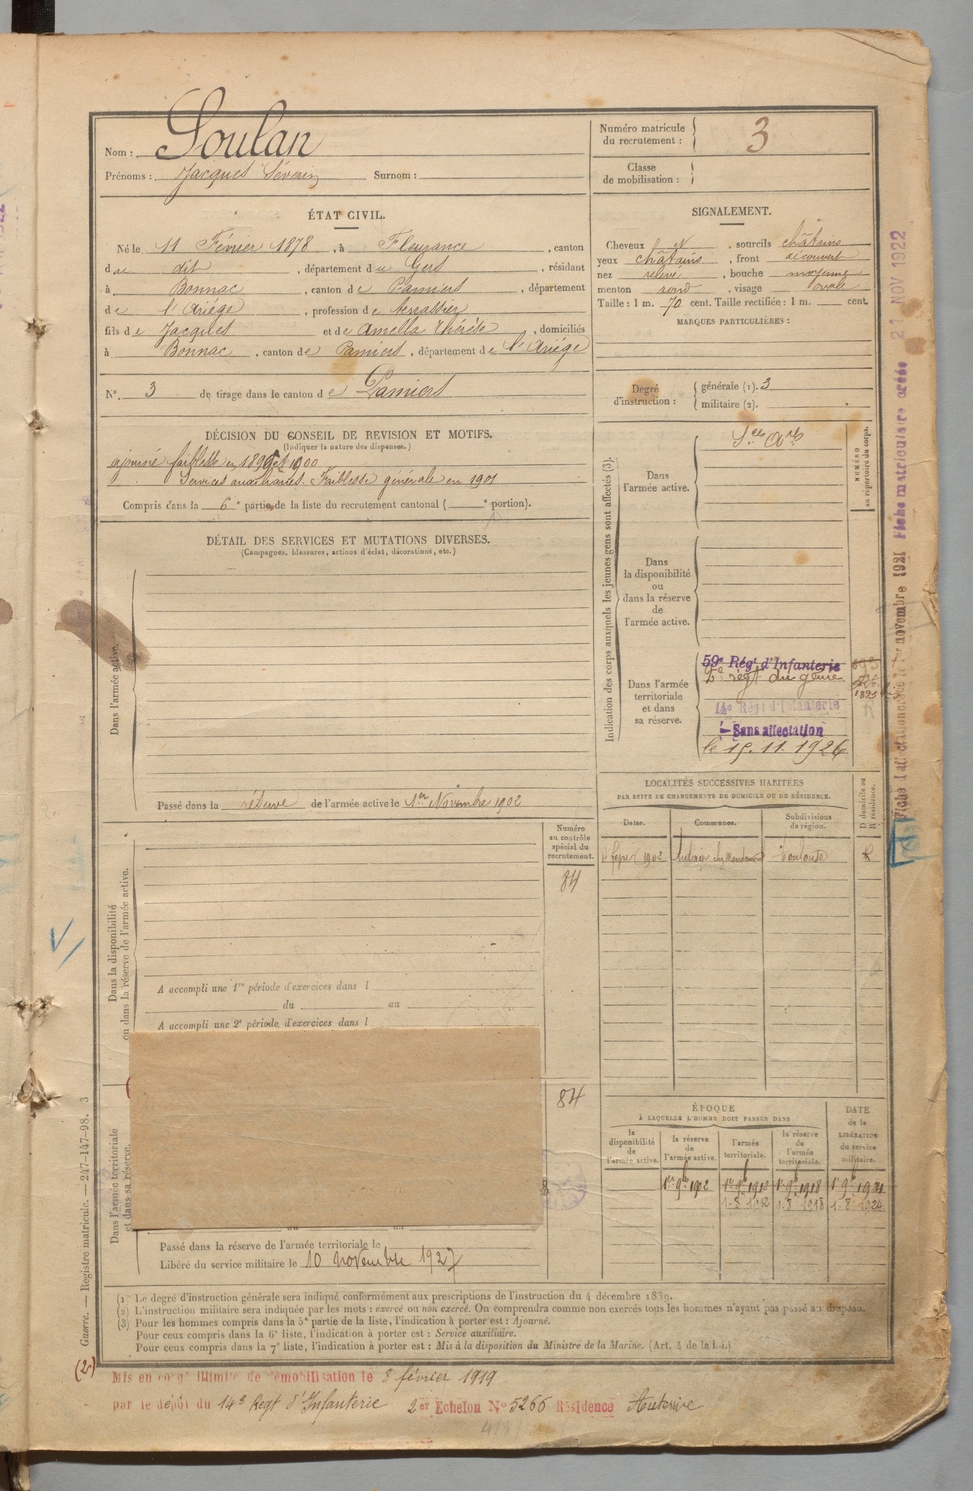 Nom : Soulan
Prénoms : Jacques Séverin Surnom :
Numéro matricule du recrutement : 3
Classe de mobilisation :
ÉTAT CIVIL.
Né le 11 Février 1878, à Fleurance, canton
du dit, département du Gers, résidant
à Bonnac, canton de Pamiers, département
de l'Ariége, profession de terrassier
fils de Jacques et de Amella Thérèse, domiciliés
à Bonnac, canton de Pamiers, département de l'Ariége
N° 3 de tirage dans le canton de Pamiers
SIGNALEMENT.
Cheveux, sourcils châtains
yeux châtains, front découvert
nez relevé, bouche moyenne
menton rond, visage ovale
Taille : 1 m. 70 cent. Taille rectifiée : 1 m. cent.
MARQUES PARTICULIÈRES :
Degré d'instruction : générale (1). 3
militaire (2).
DÉCISION DU CONSEIL DE REVISION ET MOTIFS.
(Indiquer la nature des dispenses.)
ajourné faiblesse en 1899 et 1900
Services auxiliaires. Faiblesse générale en 1901
Compris dans la 6e partie de la liste du recrutement cantonal ( e portion).
DÉTAIL DES SERVICES ET MUTATIONS DIVERSES.
(Campagnes, blessures, actions d'éclat, décorations, etc.)
Dans l'armée active.
Passé dans la réserve de l'armée active le 1er Novembre 1902
Indication des corps auxquels les jeunes gens sont affectés (3).
NUMÉRO au répertoire du corps.
Dans l'armée active.
Dans la disponibilité ou dans la réserve de l'armée active.
Dans l'armée territoriale et dans sa réserve.
59e Régt d'Infanterie
2e régt du génie
14e Régt d'Infanterie
Sans affectation
le 15.11.1926
LOCALITÉS SUCCESSIVES HABITÉES
PAR SUITE DE CHANGEMENTS DE DOMICILE OU DE RÉSIDENCE.
Dates. Communes. Subdivisions de région. D domicile ou R résidence.
1902 Toulouse R
Numéro au contrôle spécial du recrutement.
84
Dans la disponibilité ou dans la réserve de l'armée active.
A accompli une 1re période d'exercices dans l
du au
A accompli une 2e période d'exercices dans l
84
Dans l'armée territoriale et dans sa réserve.
ÉPOQUE
À LAQUELLE L'HOMME DOIT PASSER DANS
la disponibilité de l'armée active. la réserve de l'armée active. l'armée territoriale. la réserve de l'armée territoriale. DATE de la LIBÉRATION du service militaire.
1er 9bre 1902 1er 9bre 1912 1er 9bre 1918 1er 9bre 1924
1-8 1912 1-8 1918 1-8 1924
Passé dans la réserve de l'armée territoriale le
Libéré du service militaire le 10 novembre 1927
(1) Le degré d'instruction générale sera indiqué conformément aux prescriptions de l'instruction du 4 décembre 1889.
(2) L'instruction militaire sera indiquée par les mots : exercé ou non exercé. On comprendra comme non exercés tous les hommes n'ayant pas passé au drapeau.
(3) Pour les hommes compris dans la 5e partie de la liste, l'indication à porter est : Ajourné.
Pour ceux compris dans la 6e liste, l'indication à porter est : Service auxiliaire.
Pour ceux compris dans la 7e liste, l'indication à porter est : Mis à la disposition du Ministre de la Marine. (Art. 4 de la loi.)
(2) Mis en congé illimité de démobilisation le 8 février 1919
par le dépôt du 14e Regt d'Infanterie 2er Echelon N° 5266 Résidence Auterive
Guerre. — Registre matricule. — 247-147-98. 3
novembre 1921 Fiche matriculaire créée 21 NOV 1922